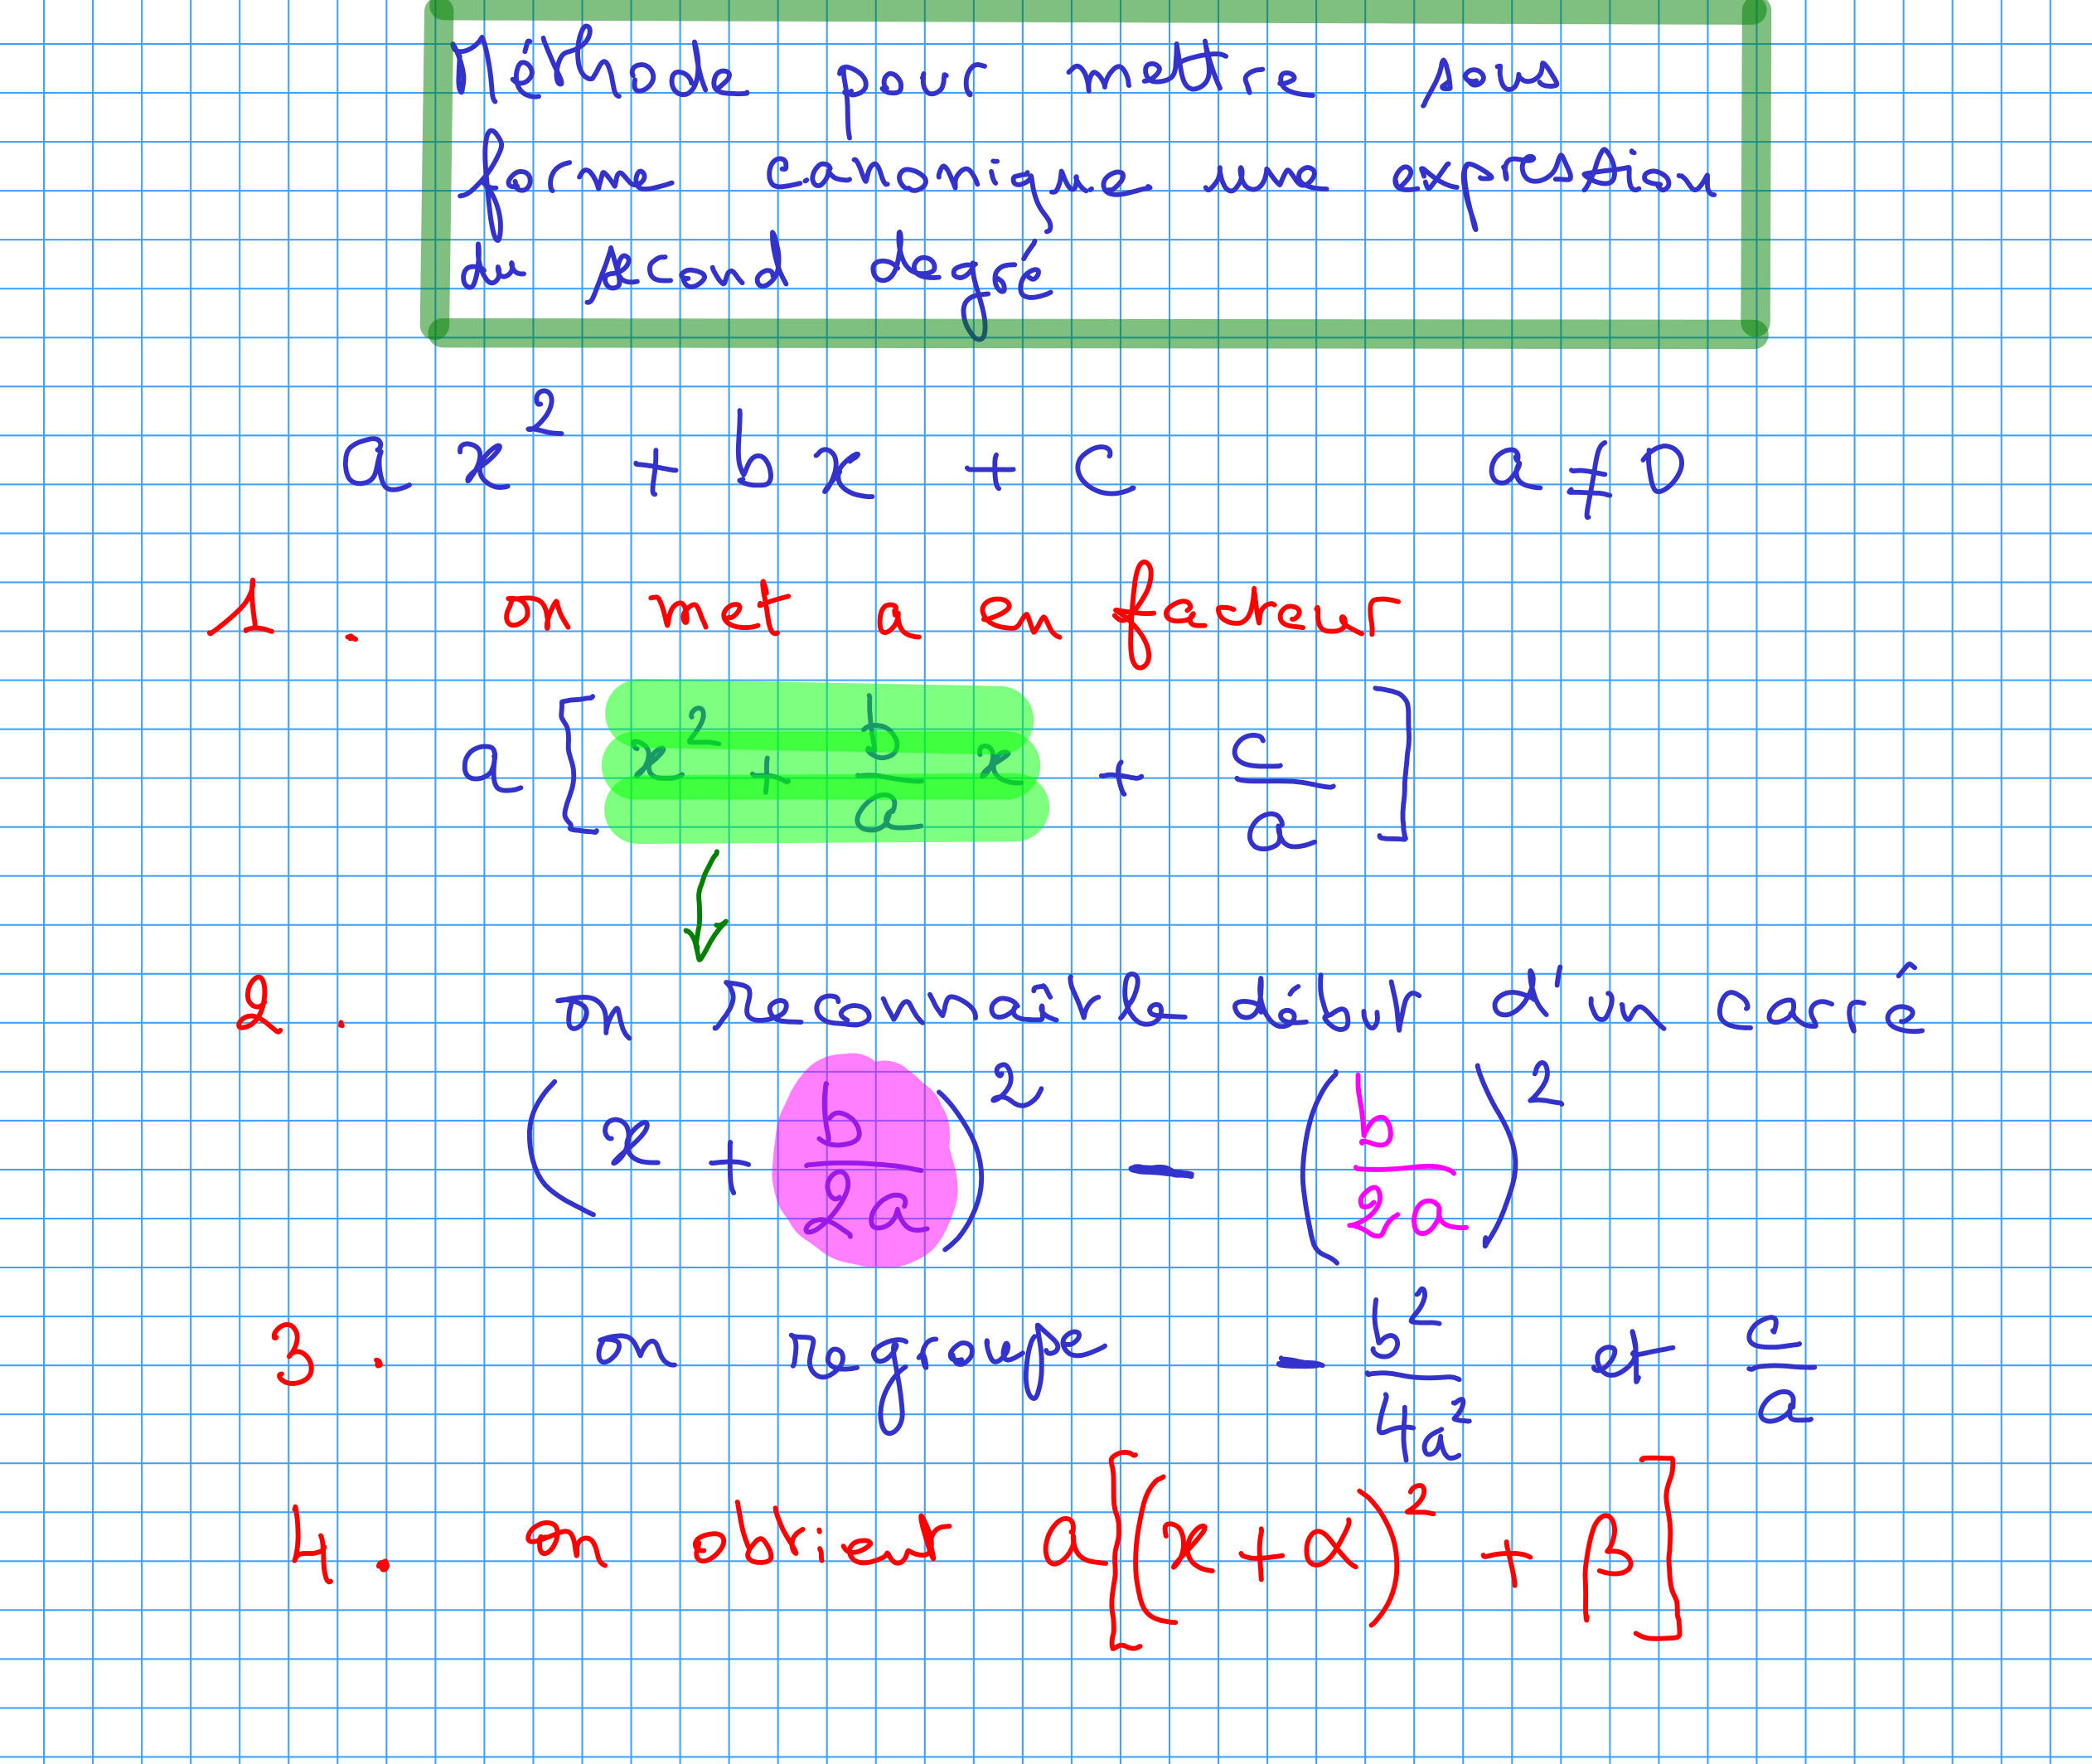 Méthode pour mettre sous
forme canonique une expression
du second degré
a x² + b x + c a ≠ 0
1. on met a en facteur
a [ x² + b/a x + c/a ]
2. on reconnaît le début d'un carré
( x + b/2a )² - ( b/2a )²
3. on regroupe - b²/4a² et c/a
4. on obtient a [ ( x + α )² + β ]